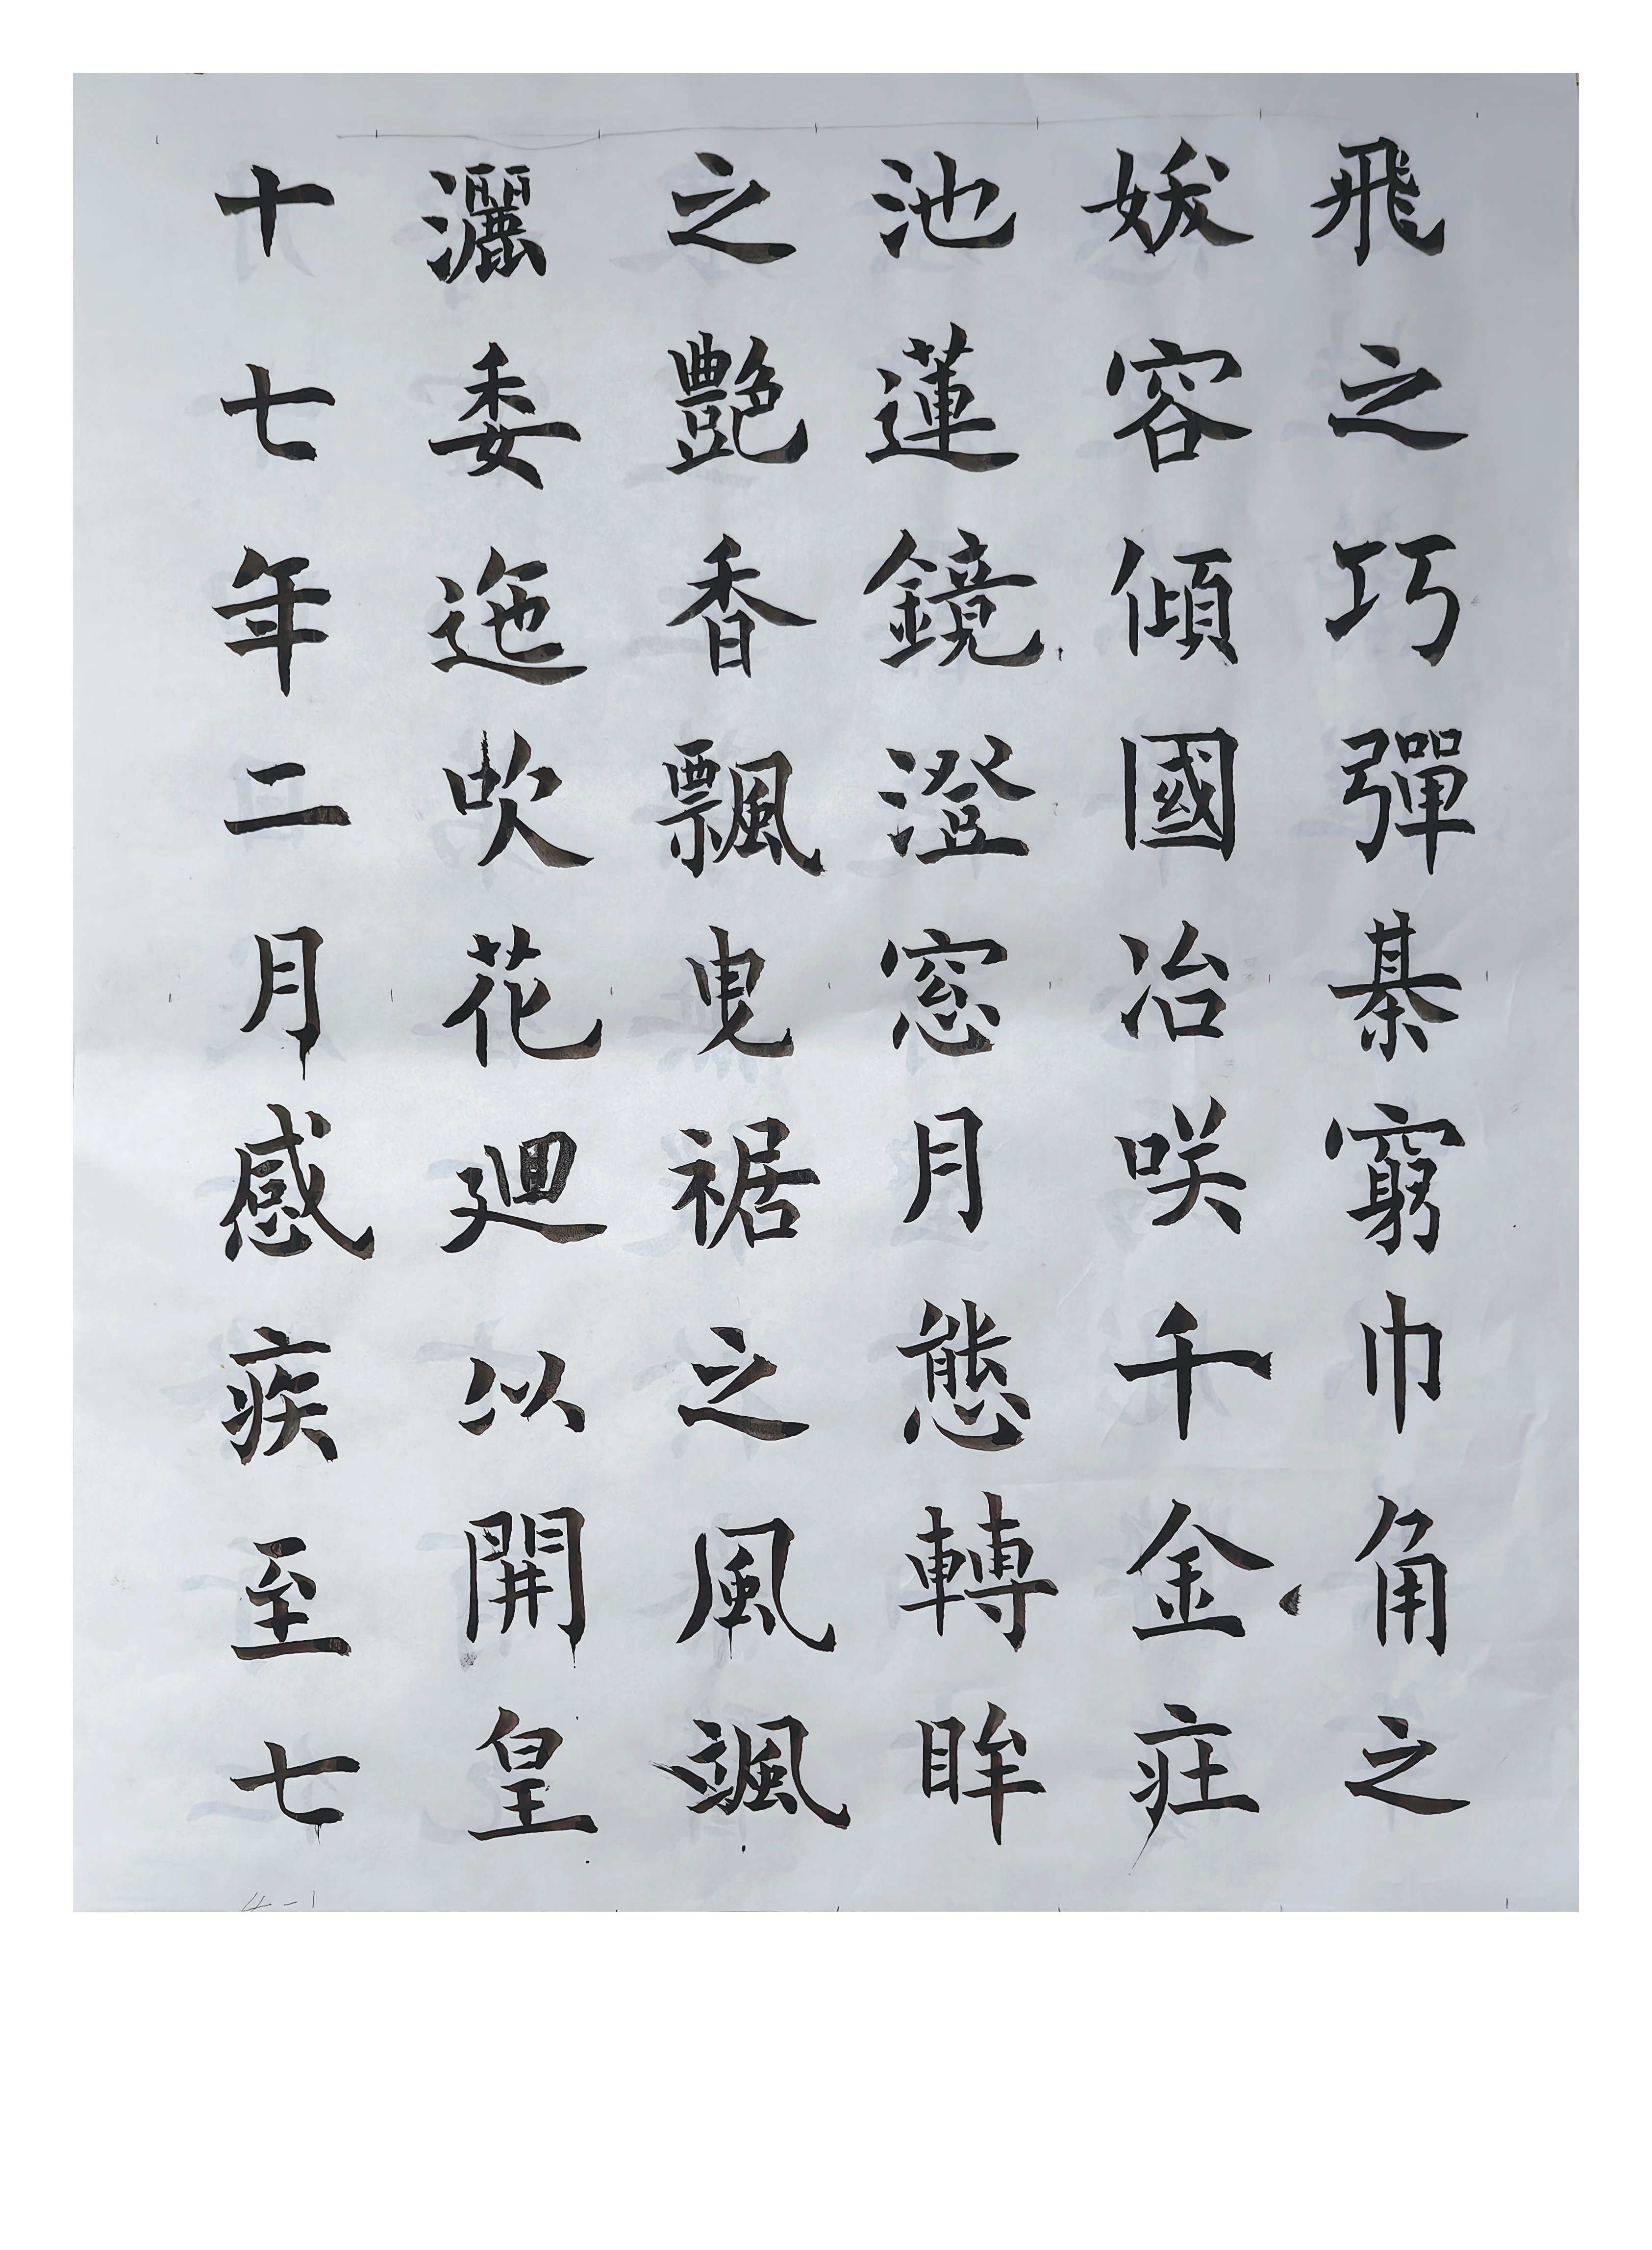 飛之巧彈棊窮巾角之
妖容傾國冶咲千金疰
池蓮鏡澄窓月態轉眸
之艷香飄曳裾之風颯
灑委迤吹花廻以開皇
十七年二月感疾至七
4-1